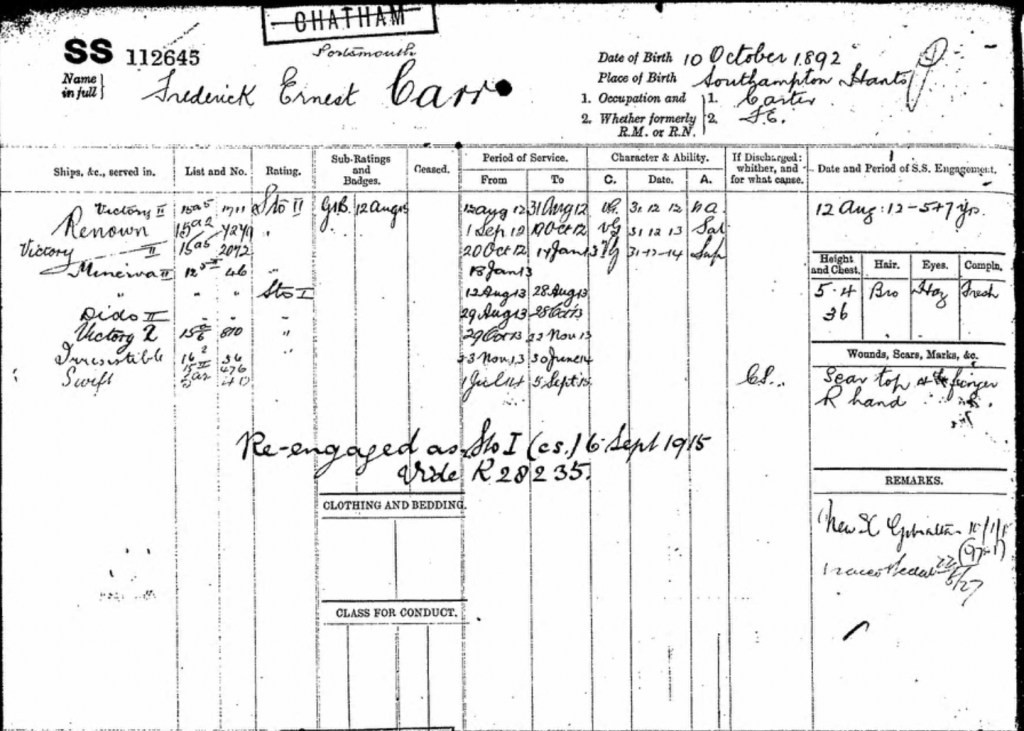 CHATHAM
Portsmouth
SS 112645
Name in full} Frederick Ernest Carr
Date of Birth 10 October 1892
Place of Birth Southampton Hants
1. Occupation and 1. Carter
2. Whether formerly R.M. or R.N. 2.
Ships, &c., served in. List and No. Rating. Sub-Ratings and Badges. Ceased. Period of Service. From To Character & Ability. C. Date. A. If Discharged: whither, and for what cause. Date and Period of S.S. Engagement.
Victory II 15a5 Sto II 12 Aug 15 12 Aug 12 31 Aug 12 VG 31 12 12 na
12 Aug: 12 - 5+7 yrs.
Renown 15a2 " 1 Sep 12 19 Oct 12 VG 31 12 13 Sat
Victory II 15a5 2072 20 Oct 12 17 Jan 13 VG 31-12-14 Sup
Minerva II 46 " 18 Jan 13
" " " Sto I 12 Aug 13 28 Aug 13
Dido II " " 29 Aug 13 28 Oct 13
Victory 2 870 " 29 Oct 13 22 Nov 13
Irresistible 36 " 23 Nov 13 30 June 14
476
Swift 1 Jul 14 5 Sept 15 CS.
Height and Chest. Hair. Eyes. Compln.
5·4 Bro Haz Fresh
36
Wounds, Scars, Marks, &c.
Scar top finger
R hand
Re-engaged as Sto I (cs.) 6 Sept 1915
Vide R 28235.
CLOTHING AND BEDDING.
CLASS FOR CONDUCT.
REMARKS.